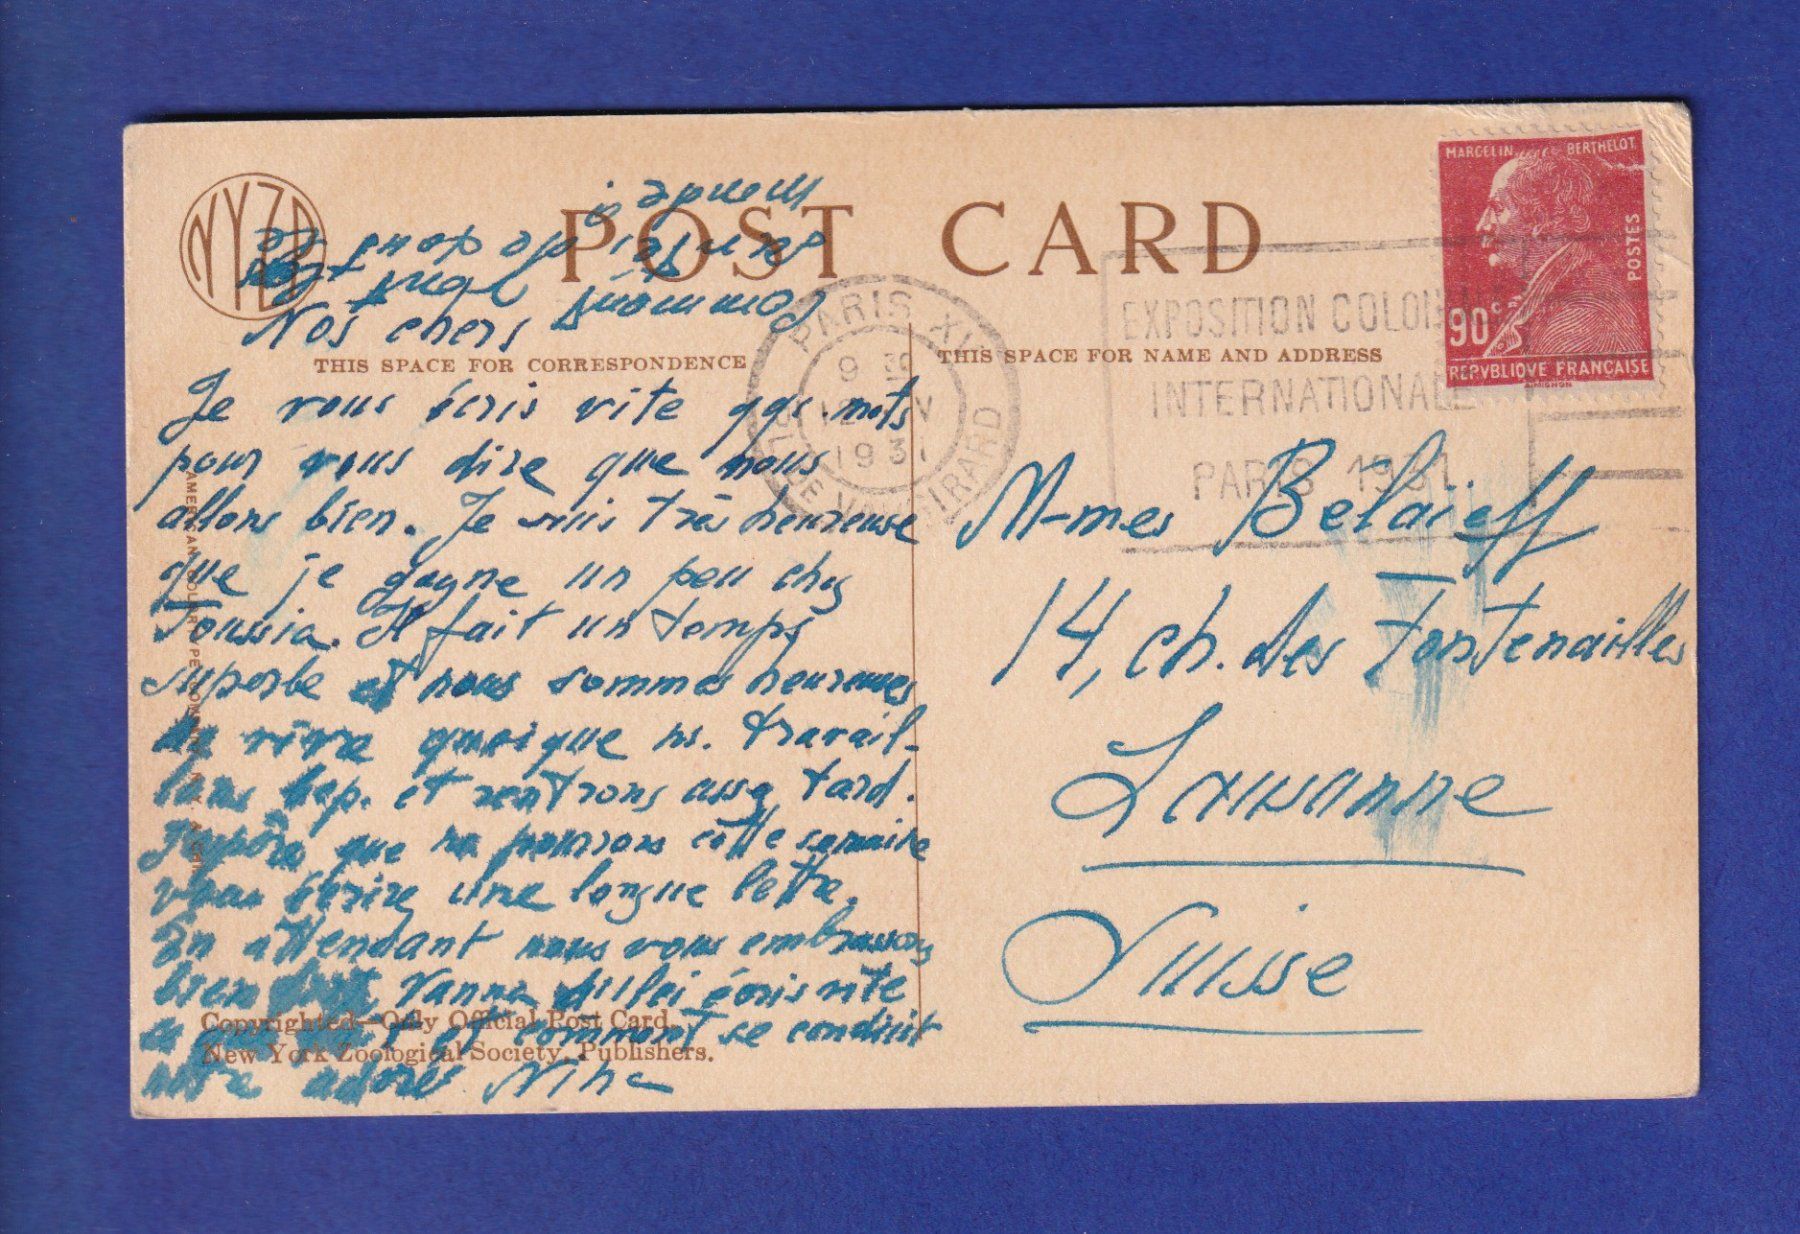 NYZS
POST CARD
Nos chers
THIS SPACE FOR CORRESPONDENCE
THIS SPACE FOR NAME AND ADDRESS
Je vous écris vite qqs mots
pour vous dire que nous
allons bien. Je suis très heureuse
que je gagne un peu chez
Toussia. Il fait un temps
superbe et nous sommes heureuses
de vivre quoique ns. travail-
lons bcp. et rentrons assez tard.
J'espère que ns pourrons cette semaine
vous écrire une longue lettre.
En attendant nous vous embrassons
bien écris vite
et comment se conduit
notre adorée Nina
Copyrighted—Only Official Post Card.
New York Zoological Society, Publishers.
M-mes Belaïeff
14, ch. des Fontenailles
Lausanne
Suisse
MARCELIN BERTHELOT
POSTES
90c
REPVBLIQVE FRANÇAISE
PARIS XV
9 30
1931
EXPOSITION COLONIALE
INTERNATIONALE
PARIS 1931